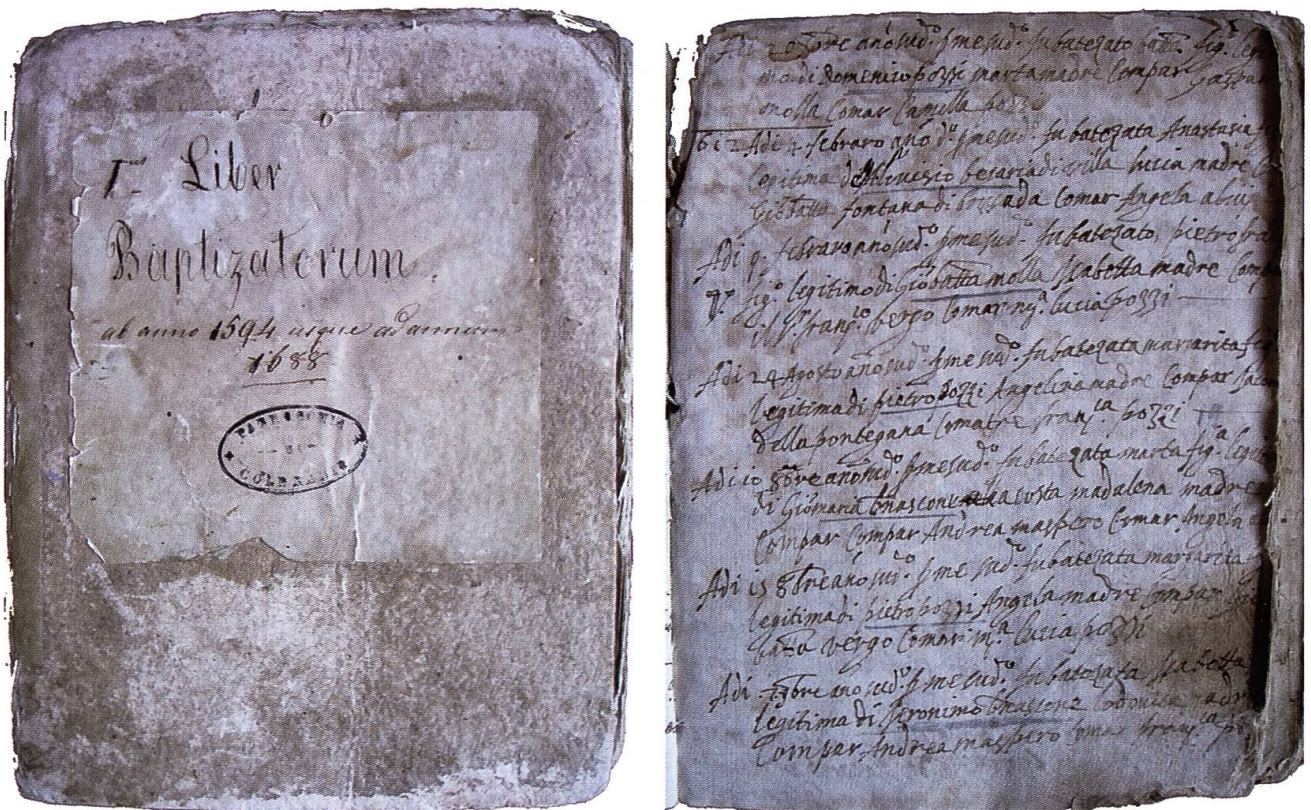 I Liber
Baptizatorum
ab anno 1594 usque ad annum
1688
PARROCCHIA
DI
COLDRERIO
Adi 20 anõ sud.º p me sud.º fu batezato fig.º
mo di domenico pozzi marta madre Compar Gaspar
molla Comar Camilla pozzi
612 Adi 4 febraro ano d.º p me sud.º fu batezata Anastasia
legitima di becaria di villa lucia madre
Giõbatta fontana di Comar Angela
Adi 9 febraro anõ sud.º p me sud.º fu batezato pietro fra
fig.º legitimo di Giõbatta molla Isabetta madre Comp
il fran.co vergo Comar m.ª lucia pozzi
Adi 24 Agosto anõ sud.º p me sud.º fu batezata margarita fig
legitima di pietro pozzi Angelina madre Compar Jacom
della pontegana Comatre fran.ca pozzi
Adi 10 8bre anõ sud.º p me sud.º fu batezata marta fig.a legit
di Giõmaria bnascone costa madalena madre
Compar Compar Andrea maspero Comar Angela
Adi 15 8bre anõ sud.º p me sud.º fu batezata margarita
legitima di pietro pozzi Angela madre Compar
batta vergo Comar m.ª lucia pozzi
Adi 9bre ano sud.º p me sud.º fu batezata Isabetta
legitima di Jeronimo bnascone lodovica madre
Compar Andrea maspero Comar fran.ca